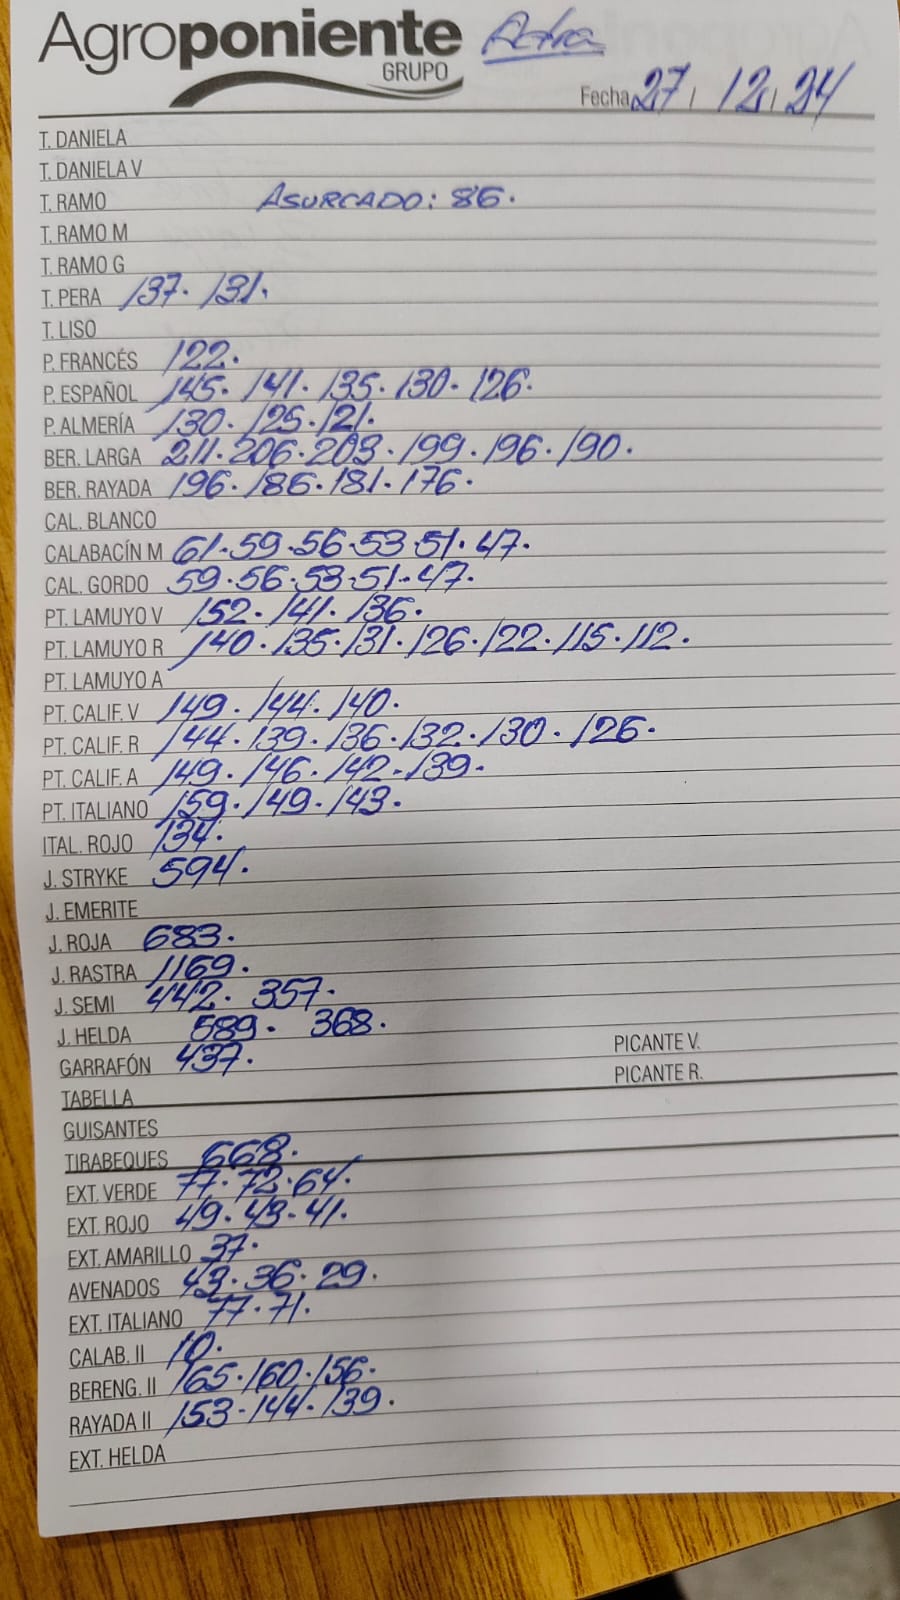 Agroponiente Adra
GRUPO
Fecha 27 / 12 / 24
T. DANIELA
T. DANIELA V
T. RAMO ASURCADO: 86.
T. RAMO M
T. RAMO G
T. PERA 137. 131.
T. LISO
P. FRANCÉS 122.
P. ESPAÑOL 145. 141. 135. 130. 126.
P. ALMERÍA 130. 125. 121.
BER. LARGA 211. 206. 203. 199. 196. 190.
BER. RAYADA 196. 186. 181. 176.
CAL. BLANCO
CALABACÍN M 61. 59. 56. 53. 51. 47.
CAL. GORDO 59. 56. 53. 51. 47.
PT. LAMUYO V 152. 141. 136.
PT. LAMUYO R 140. 135. 131. 126. 122. 115. 112.
PT. LAMUYO A
PT. CALIF. V 149. 144. 140.
PT. CALIF. R 144. 139. 136. 132. 130. 126.
PT. CALIF. A 149. 146. 142. 139.
PT. ITALIANO 159. 149. 143.
ITAL. ROJO 134.
J. STRYKE 594.
J. EMERITE
J. ROJA 683.
J. RASTRA 1169.
J. SEMI 442. 357.
J. HELDA 589. 368.
GARRAFÓN 437. PICANTE V.
TABELLA PICANTE R.
GUISANTES
TIRABEQUES 668.
EXT. VERDE 77. 72. 64.
EXT. ROJO 49. 43. 41.
EXT. AMARILLO 37.
AVENADOS 43. 36. 29.
EXT. ITALIANO 77. 71.
CALAB. II 10.
BERENG. II 165. 160. 156.
RAYADA II 153. 144. 139.
EXT. HELDA